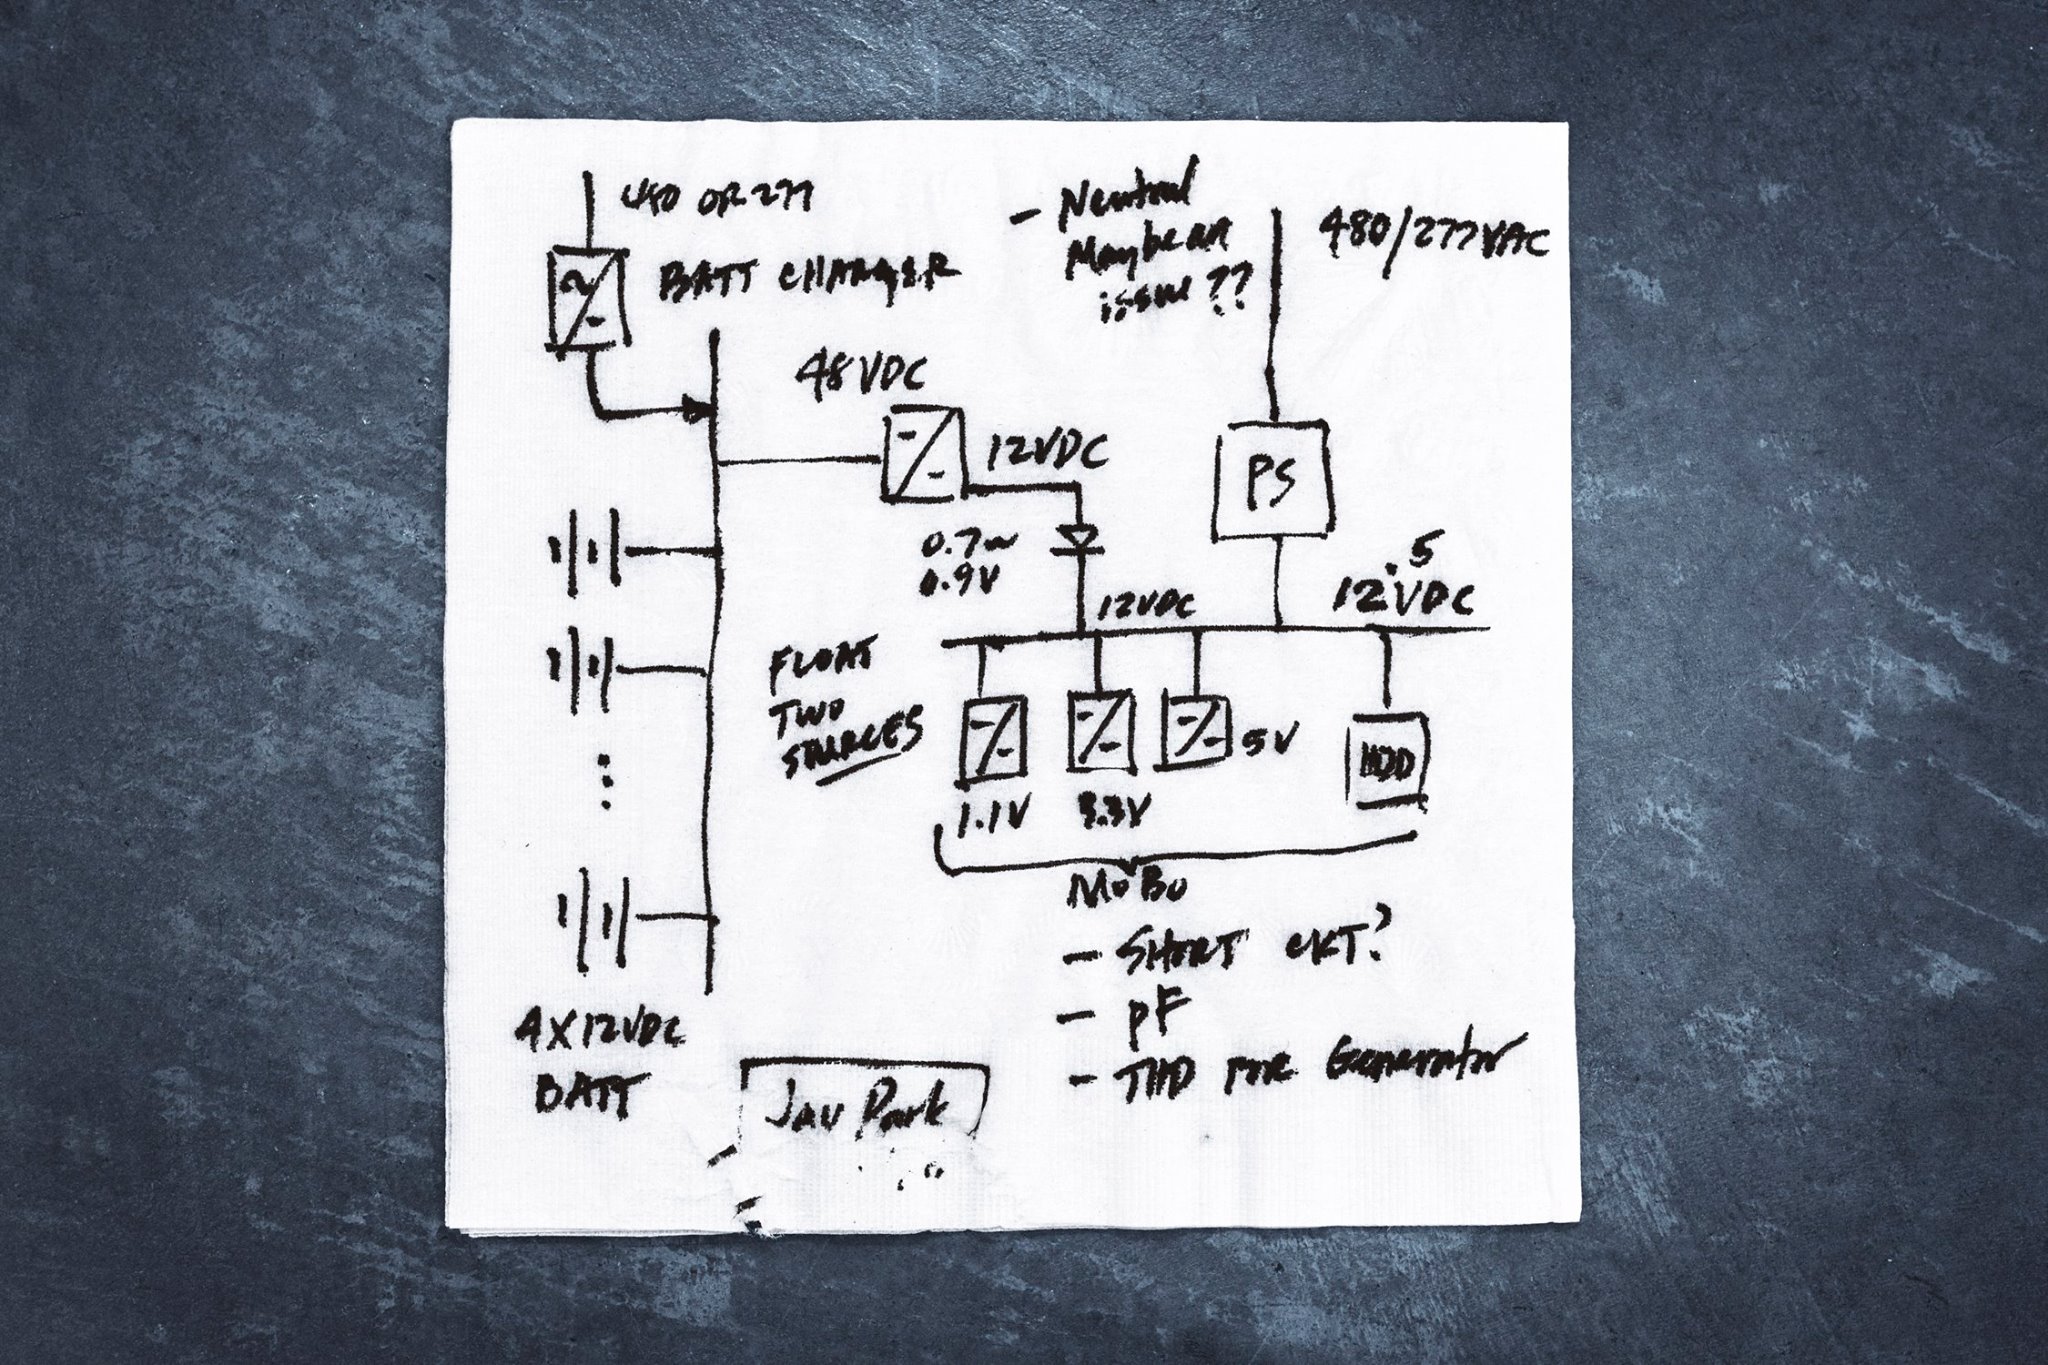 480 OR 277
BATT CHARGER
- Neutral
Maybe an
issue??
480/277VAC
48VDC
12VDC
PS
0.7~
0.9V
.5
12VDC
12VDC
FLOAT
TWO
SOURCES
5V
HDD
1.1V
3.3V
MoBo
- SHORT CKT?
- PF
- THD FOR Generator
4X12VDC
BATT
Jay Park